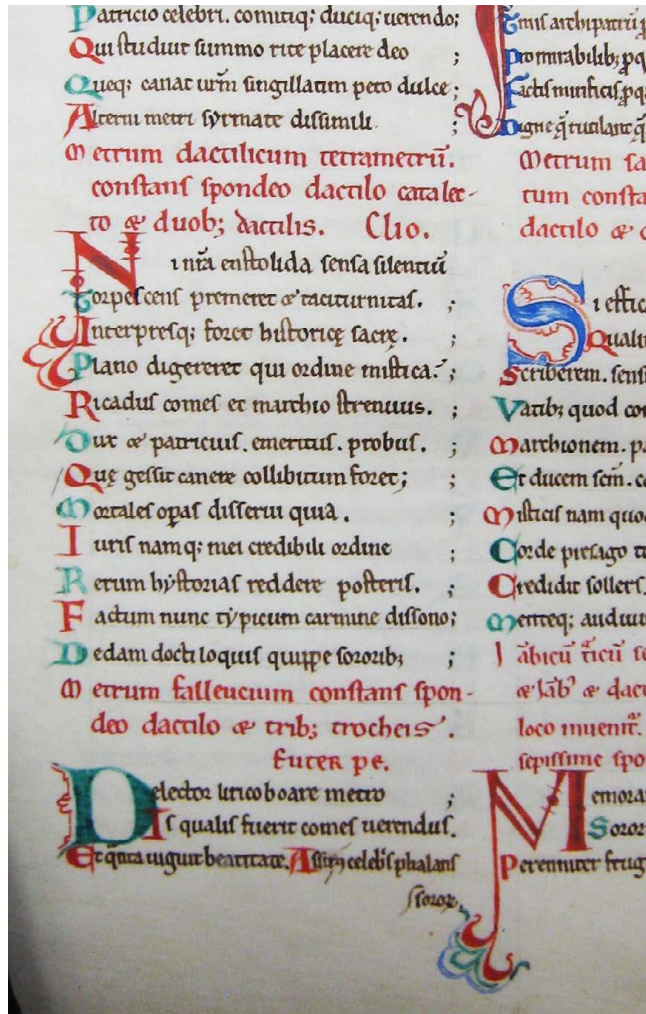 Patricio celebri. comitiq; duciq; uerendo;
Qui studuit summo rite placere deo ;
Queq; canat urm̄ singillatim peto dulce;
Alterni metri syrmate dissimili. ;
Metrum dactilicum tetrametrū.
constans spondeo dactilo catalec-
to & duob; dactilis. Clio.
Ni nr̄a enstolida sensa silentiū
Torpescens premeret & taciturnitas. ;
Interpresq; foret historicę sacrę. ;
Plano digereret qui ordine mistica. ;
Ricadus comes et marchio strenuus. ;
Dux & patricius. emeritus. probus. ;
Quę gessit canere collibitum foret; ;
Mortales opas disserui quia. ;
Iuris namq; mei credibili ordine ;
Rerum hystorias reddere posteris. ;
Factum nunc typicum carmine dissono;
Dedam docti loquis quippe sororib; ;
Metrum falleucium constans spon-
deo dactilo & trib; trocheis.
Euterpe.
Delector lirico boare metro ;
Is qualis fuerit comes uerendus.
Et q̄nta uiguit beatitate. Assim celebs phalans
ssoror
Emis archipatrū
pro mirabilib;
Factis munificis
Digne q̄ rutilant
Metrum sa
tum consta
dactilo & c
Si effic
Quali
Scriberem. sens
Vatib; quod con
Marchionem. pa
Et ducem sem̄. c
Misticis nam quo
Corde presago t
Credidit sollers.
Menteq; audiui
Iābicū
& iāb & dact
loco inuenit.
sepissime spo
Memora
Soror
Perenniter frug